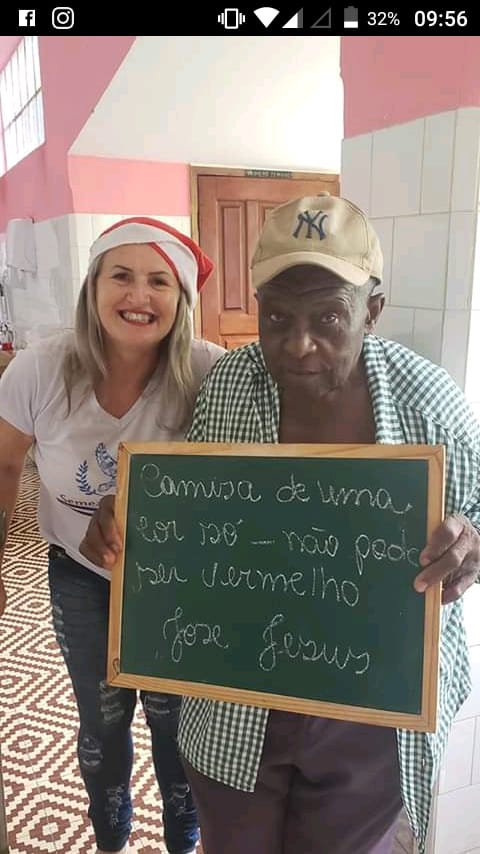 32% 09:56
NY
Seme
Camisa de uma
cor só - não pode
ser vermelho
Jose Jesus